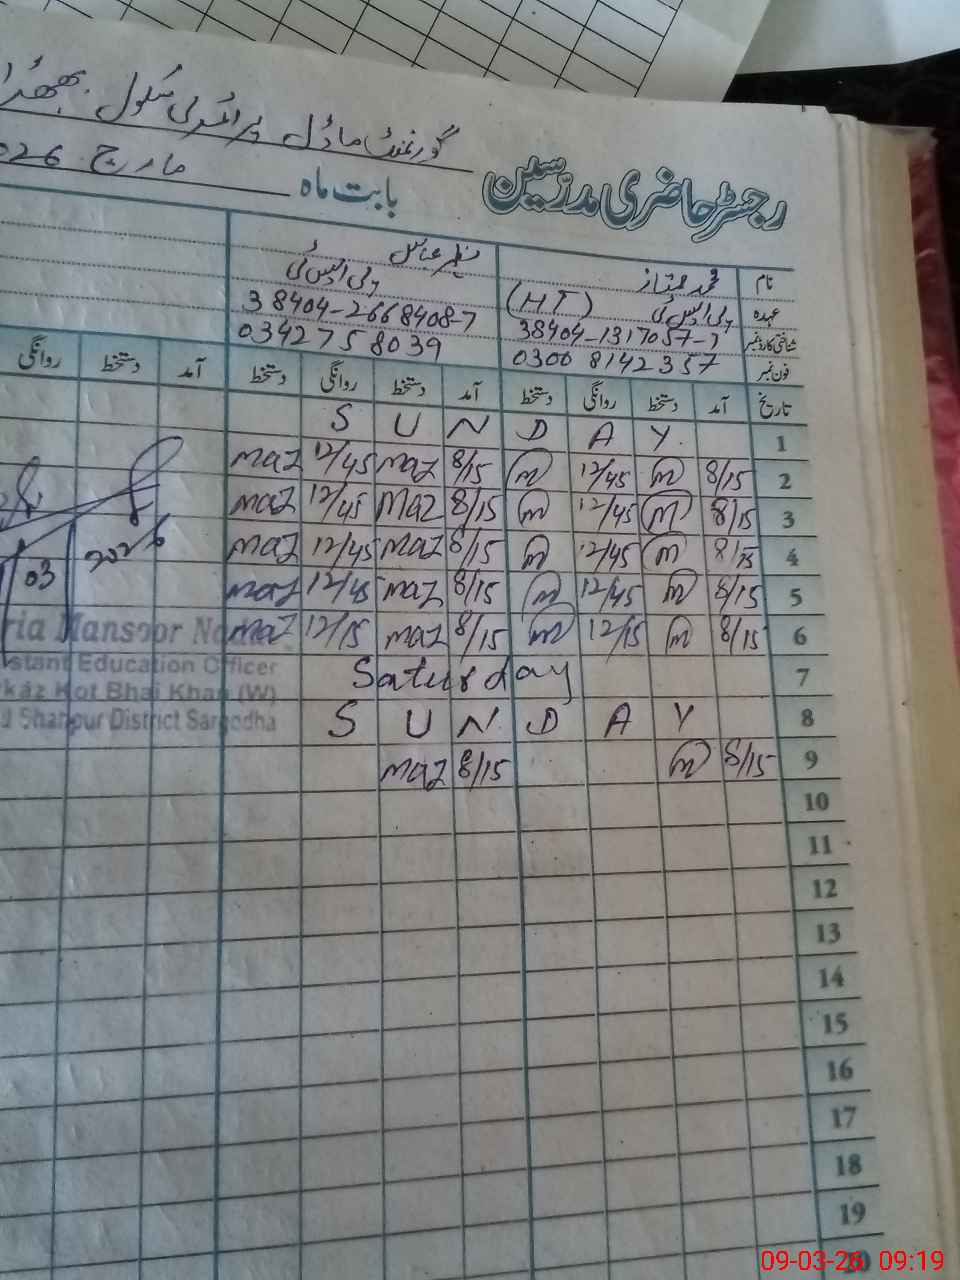 گورنمنٹ ماڈل پرائمری سکول
رجسٹر حاضری مدرسین بابت ماہ مارچ 026
نام محمد ممتاز نظر عباس
عہدہ پی ایس ٹی (HT) پی ایس ٹی
شناختی کارڈ نمبر 38404-1317057-7 38404-2668408-7
فون نمبر 0300 8142357 0342 75 8039
تاریخ آمد دستخط روانگی دستخط آمد دستخط روانگی دستخط آمد دستخط روانگی
1 S U N D A Y
2 8/15 m 12/45 m 8/15 maz 12/45 maz
3 8/15 m 12/45 m 8/15 maz 12/45 maz
4 8/15 m 12/45 m 8/15 maz 12/45 maz
5 8/15 m 12/45 m 8/15 maz 12/45 maz
6 8/15 m 12/15 m 8/15 maz 12/15 maz
7 Saturday
8 S U N D A Y
9 8/15 m 8/15 maz
10
11
12
13
14
15
16
17
18
19
20
03 2026
ria Mansoor
stant Education Officer
kaz Kot Bhai Khan (W)
Shahpur District Sargodha
09-03-26 09:19